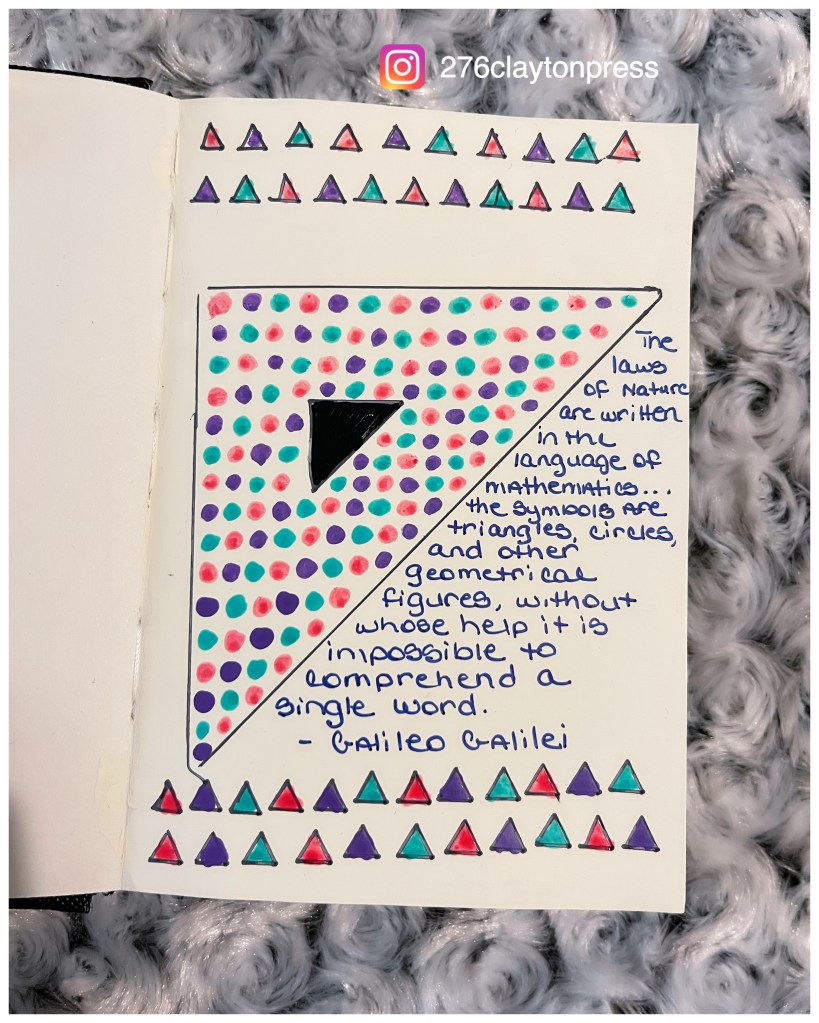 276claytonpress
The
laws
of Nature
are written
in the
language of
mathematics...
the symbols are
triangles, circles,
and other
geometrical
figures, without
whose help it is
impossible to
comprehend a
single word.
- Galileo Galilei